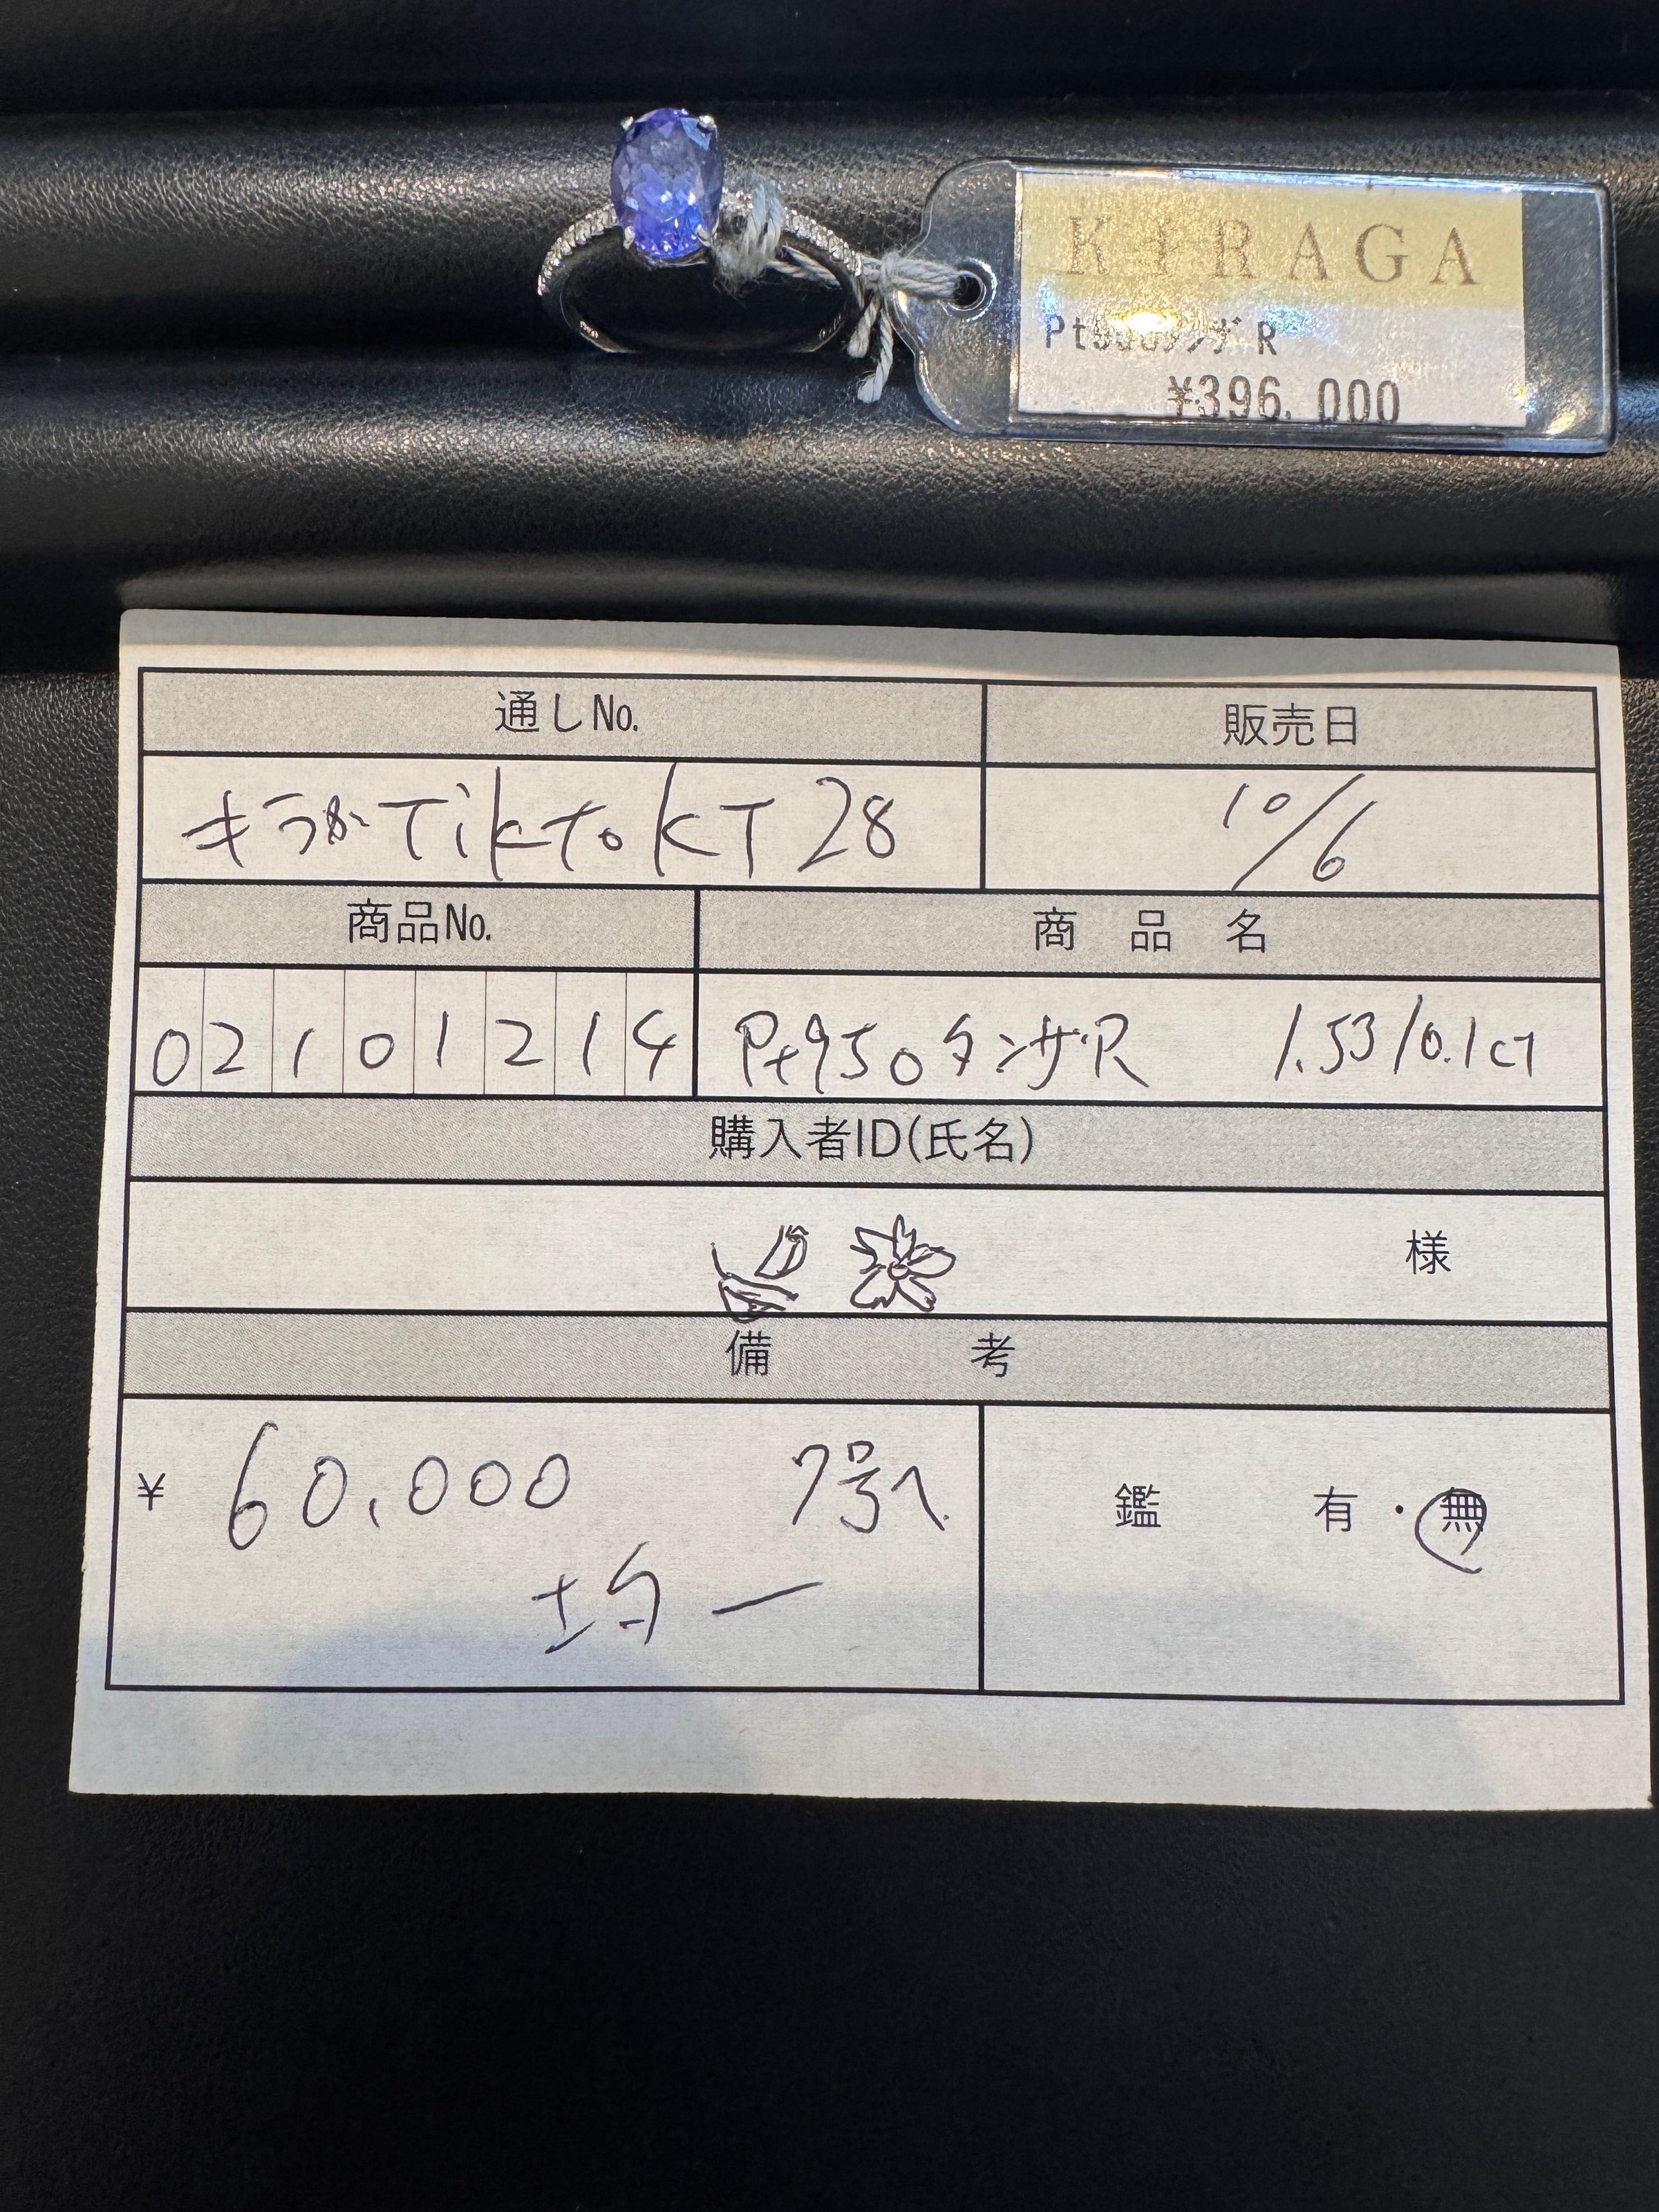 KIRAGA
Pt950ﾀﾝｻﾞR
¥396,000
通しNo.
販売日
キラガTiktokT28
10/6
商品No.
商品名
02101214
Pt950タンザR 1.53/0.1ct
購入者ID(氏名)
様
備考
¥ 60,000 7号へ
均一
鑑 有・無